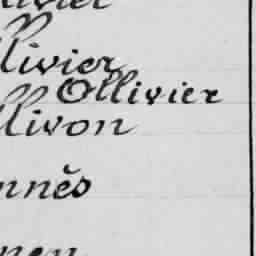 llivier
Ollivier
llivon
nnès